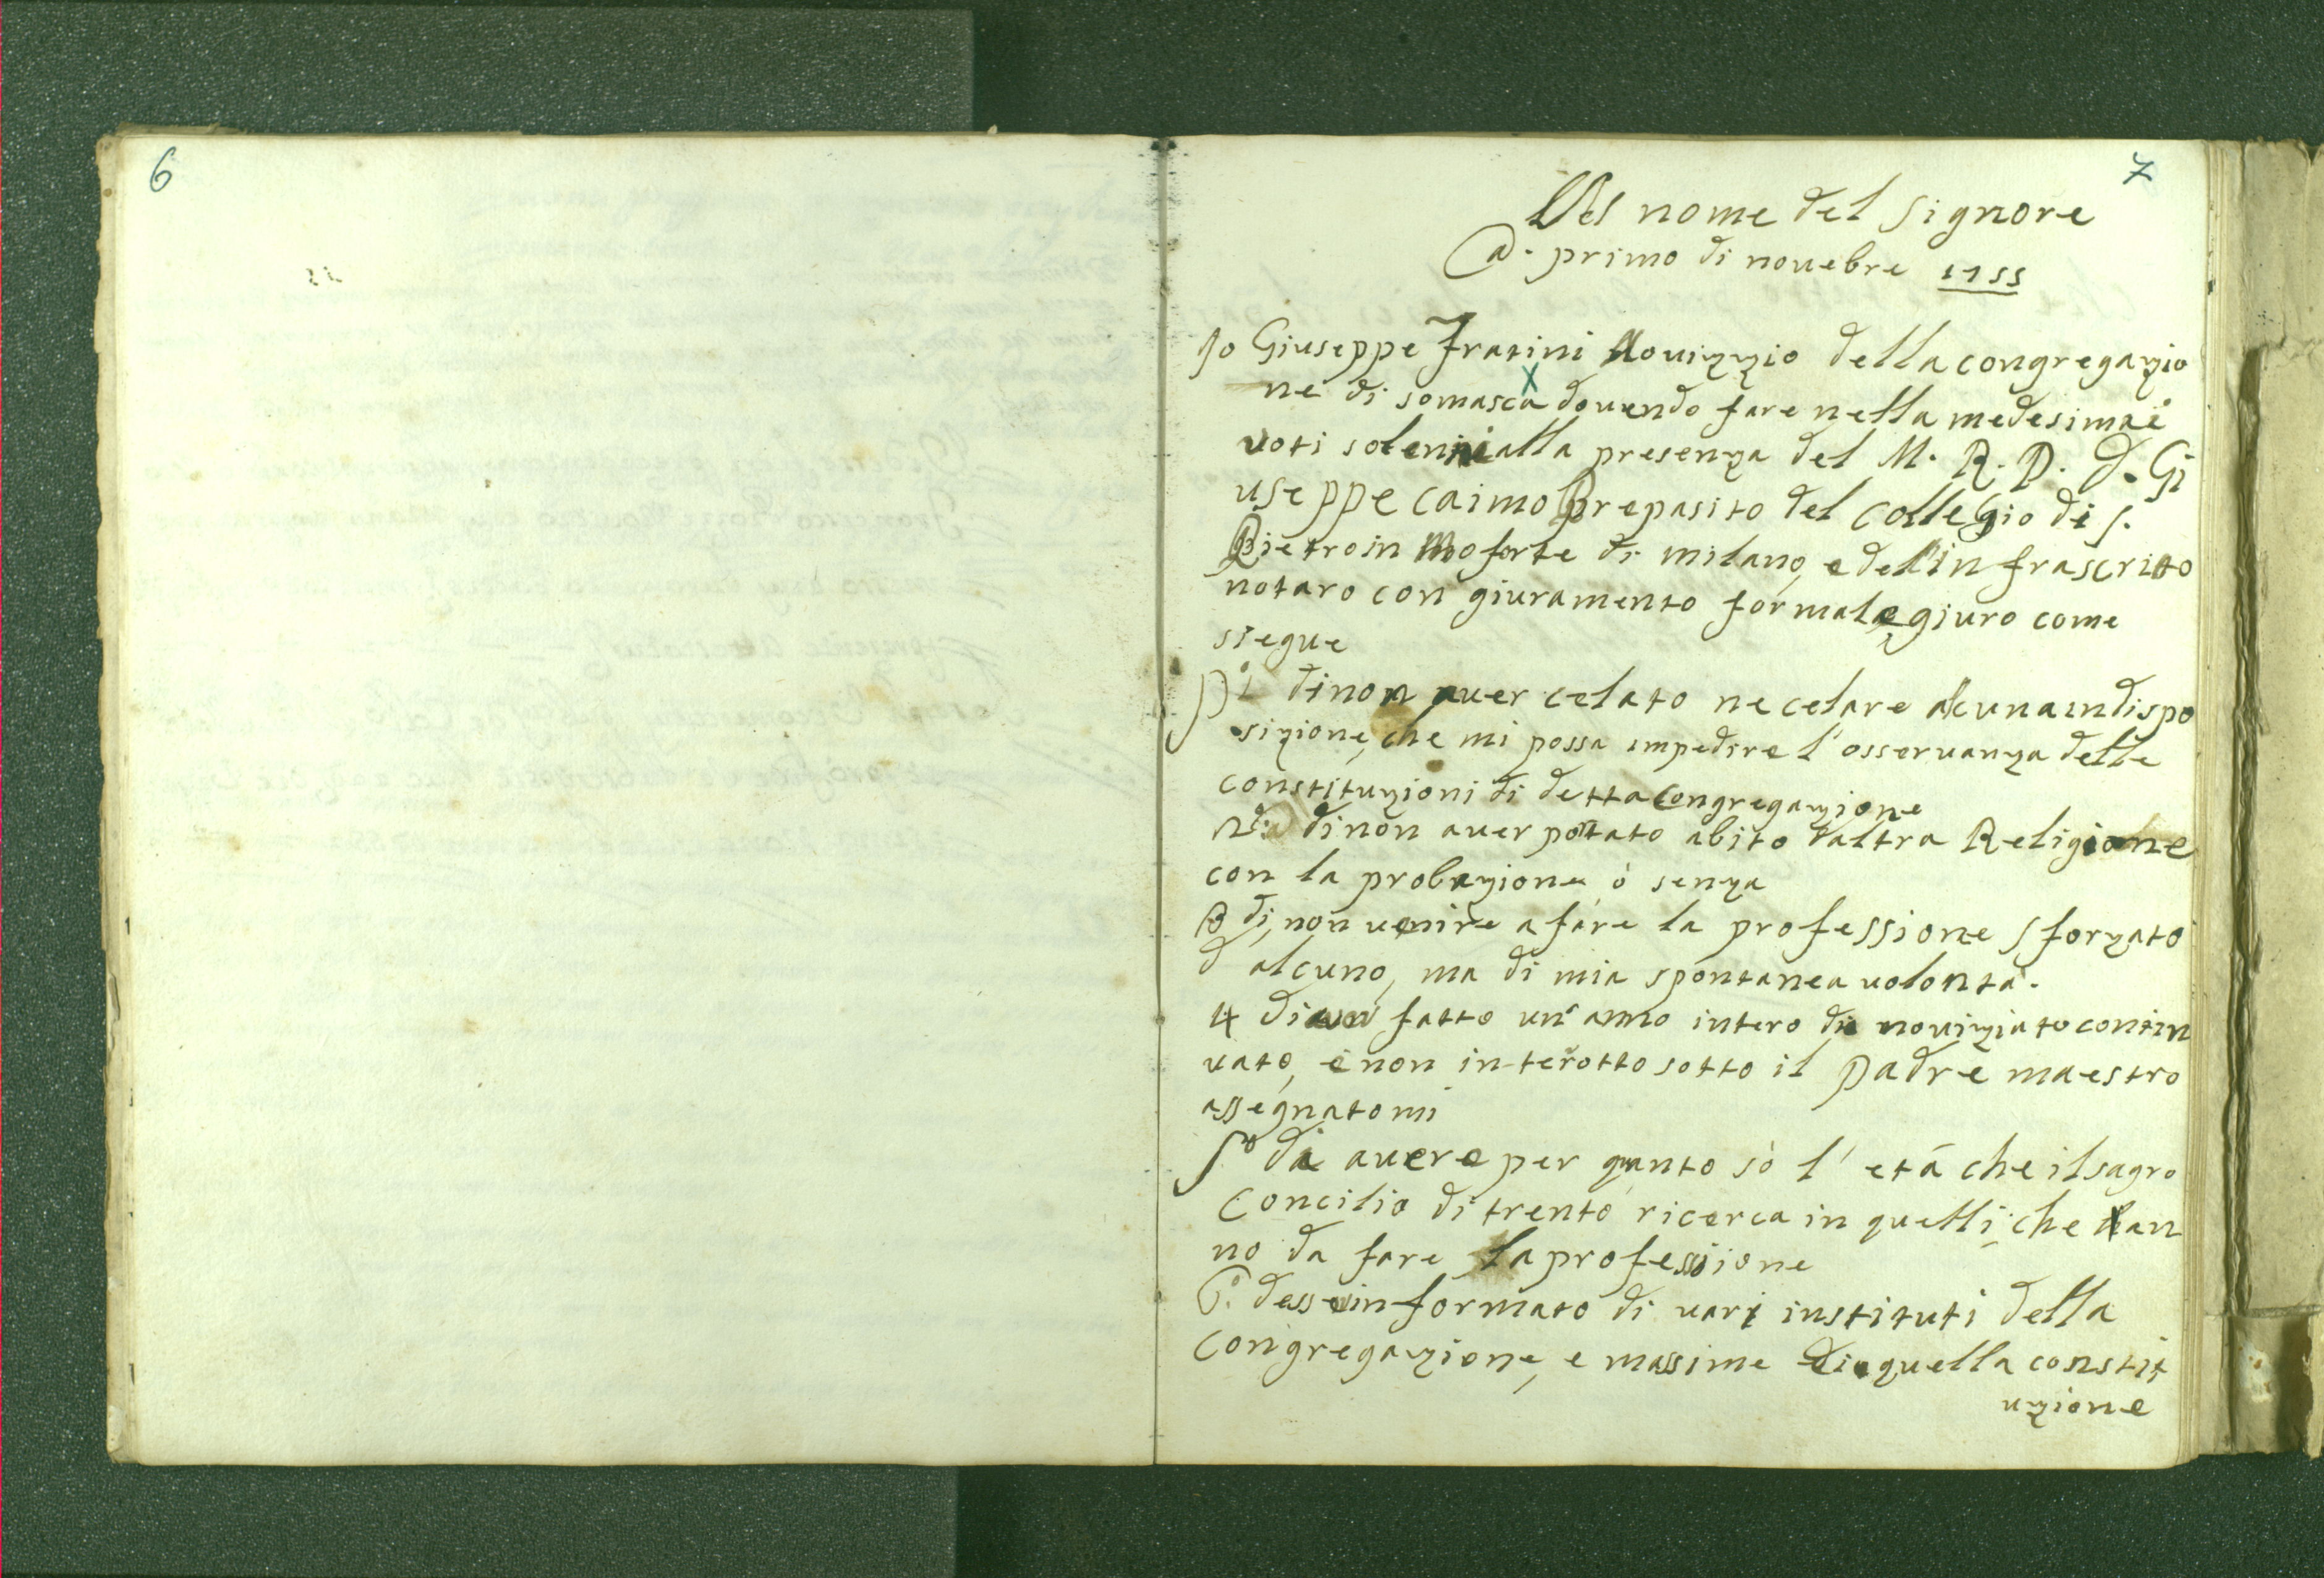 6
7
Nel nome del Signore
A. primo di nouebre 1755
Io Giuseppe Fratini Nouizzio della congregazio
ne di somasca douendo fare nella medesima i
uoti solenni alla presenza del M. R. P. D. Gi
useppe Caimo Prepasito del Collegio di S.
Pietro in Moforte di milano, e del in frascritto
notaro con giuramento formale giuro come
siegue
P.º di non auer celato ne celare alcuna indispo
sizione, che mi possa impedire l'osseruanza delle
constituzioni di detta Congregazione
2º di non auer portato abito d'altra Religione
con la probazione ò senza
3 di non uenire a fare la professione sforzato
d alcuno, ma di mia spontanea uolontà.
4 di auer fatto un anno intero di nouiziato contin
uato, e non interotto sotto il Padre maestro
assegnatomi
5º di auere per quanto sò l'età che il sagro
Concilio di trento ricerca in quelli, che han
no da fare la professione
6.º desse informato di uari instituti della
Congregazione, e massime di quella constit
uzione